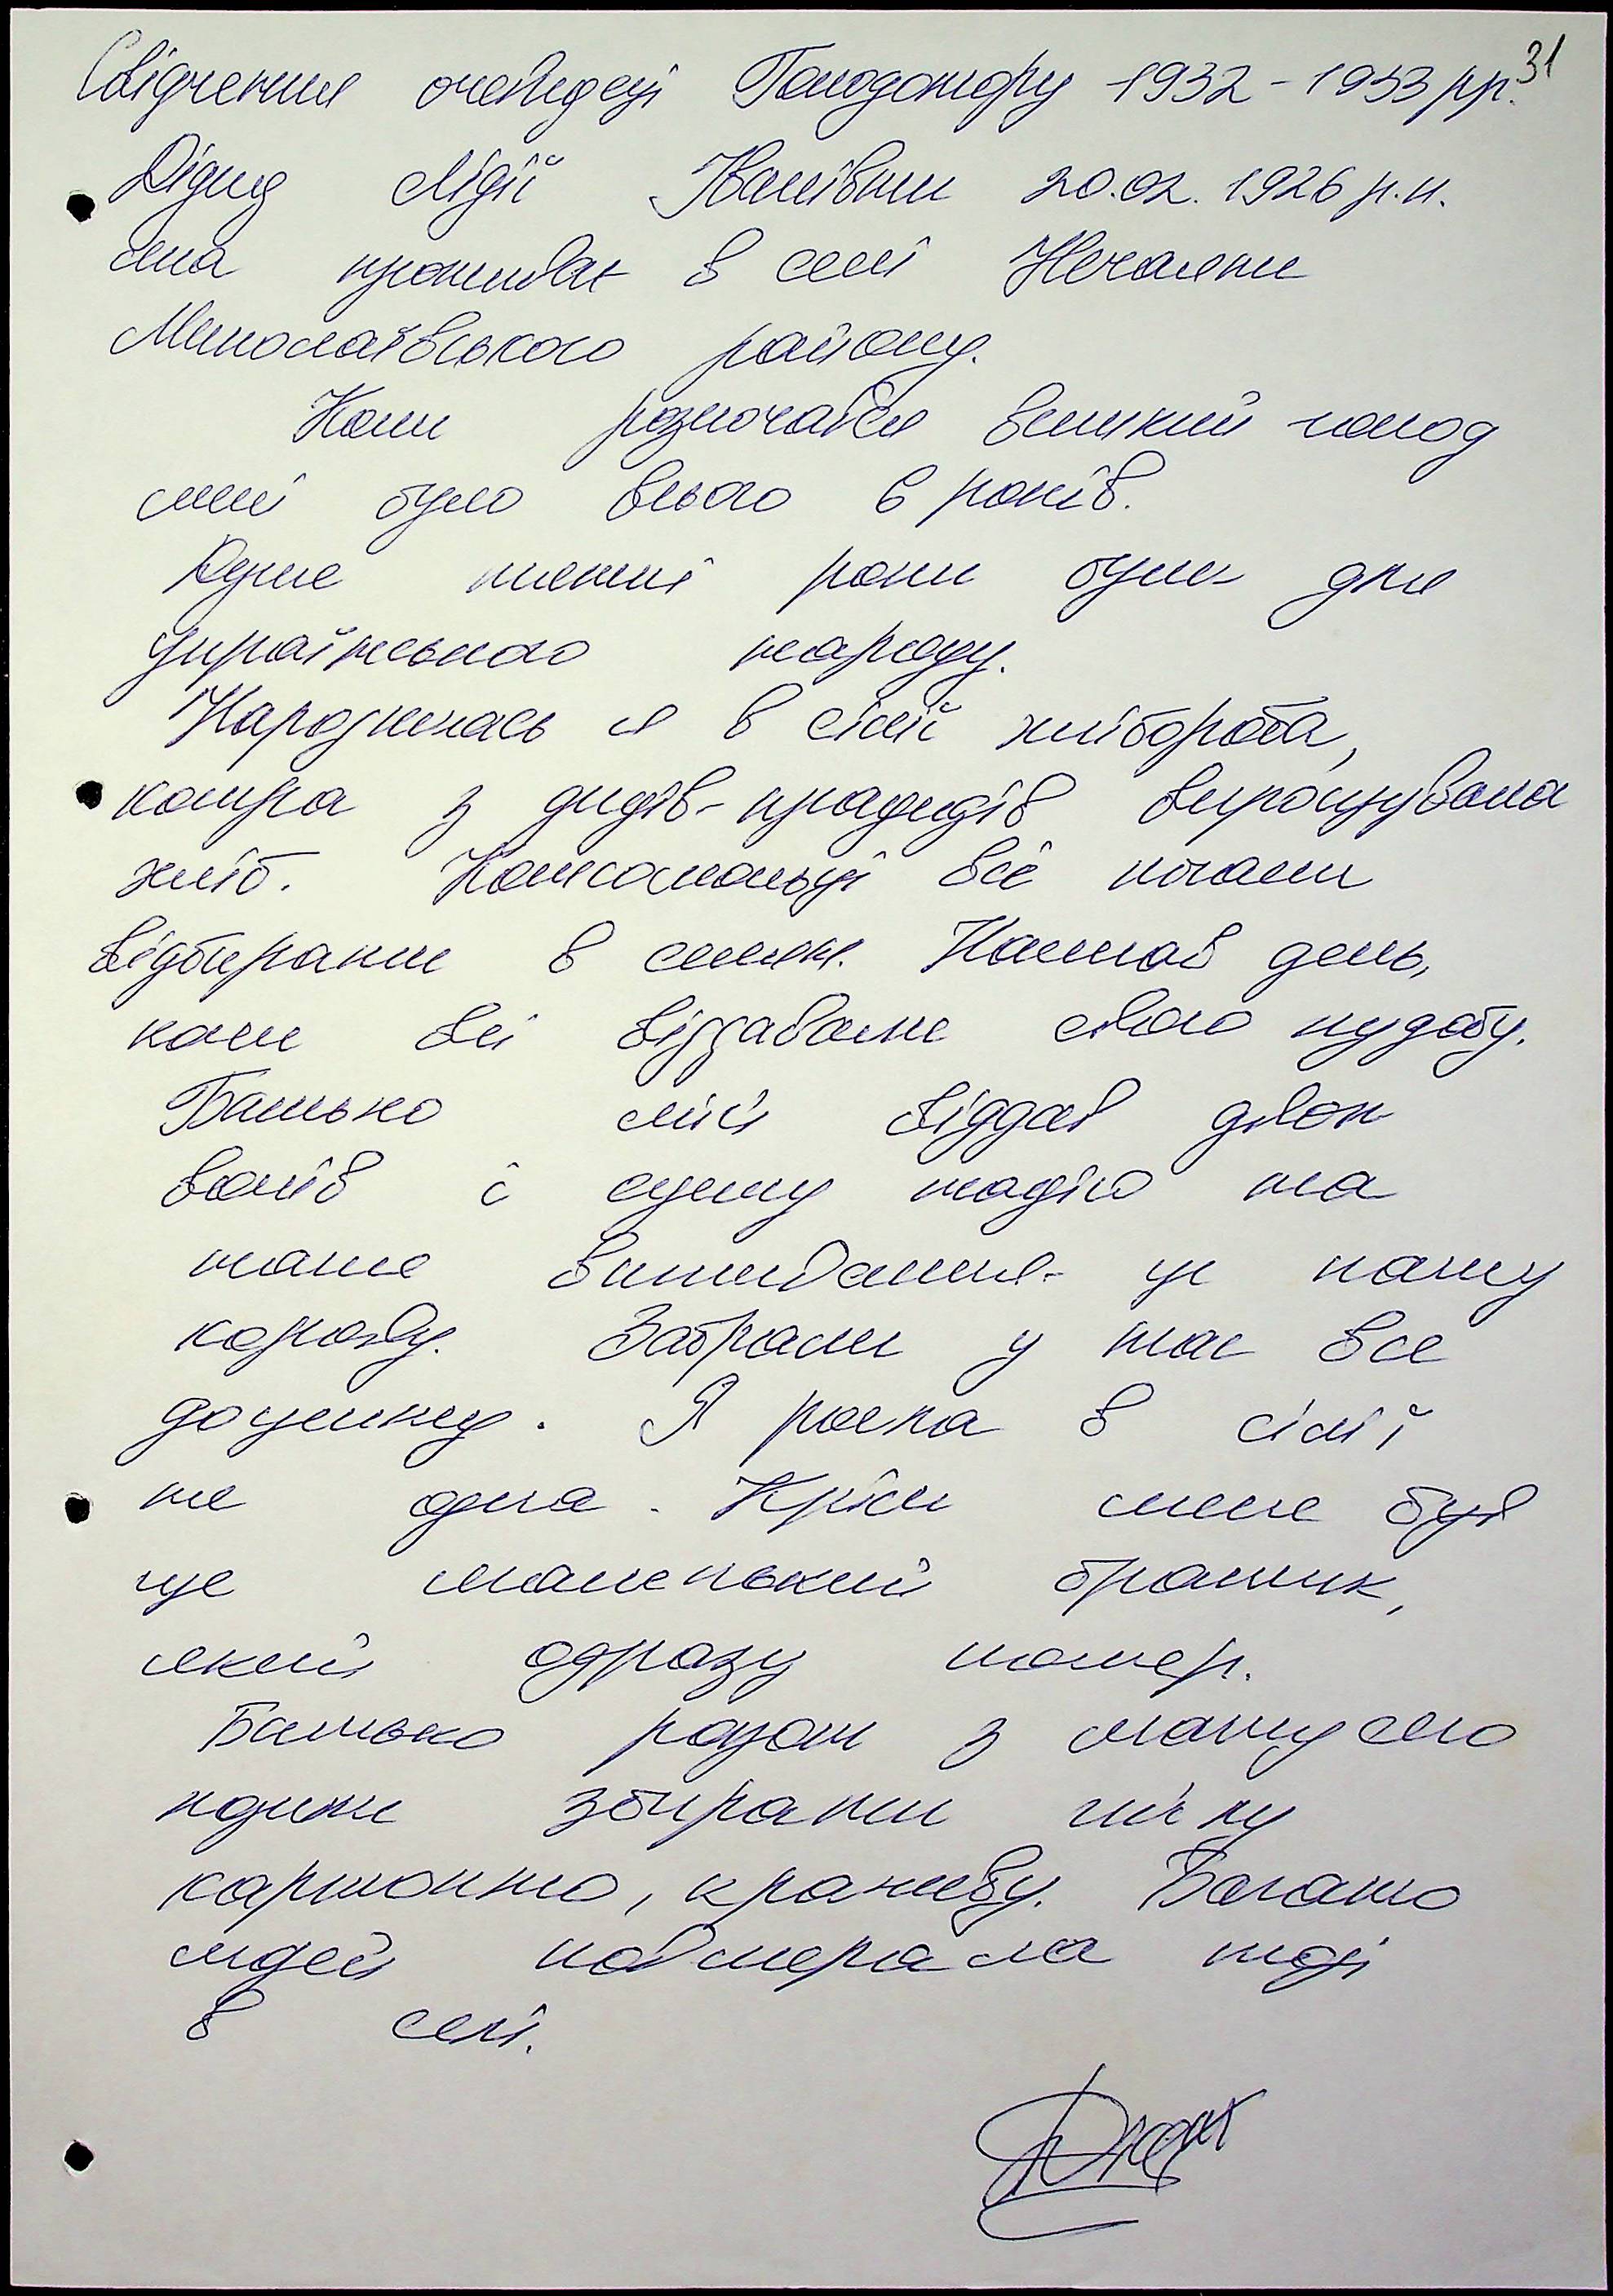 31
Свідчення очевидця Голодомору 1932-1933 рр.
Дідид Лідії Іванівни 20.02.1926 р.н.
яка проживає в селі Нечаяне
Миколаївського району.
Коли розпочався великий голод
мені було всього 6 років.
Дуже тяжкі роки були для
українського народу.
Народилась я в сімї хлібороба,
котра з дидів-прадидів вирощувала
хліб. Комсомольці всі почали
відбирати в селян. Настав день,
коли всі віддавали свою худобу.
Батько мій віддав двох
волів і єдину надію на
наше виживання - це нашу
корову. Забрали у нас все
дощенту. Я росла в сімї
не одна. Крім мене був
ще маленький братик,
який одразу помер.
Батько разом з матусею
ходили збирати гичку
картоплю, кропиву. Багато
людей повмерала тоді
в селі.